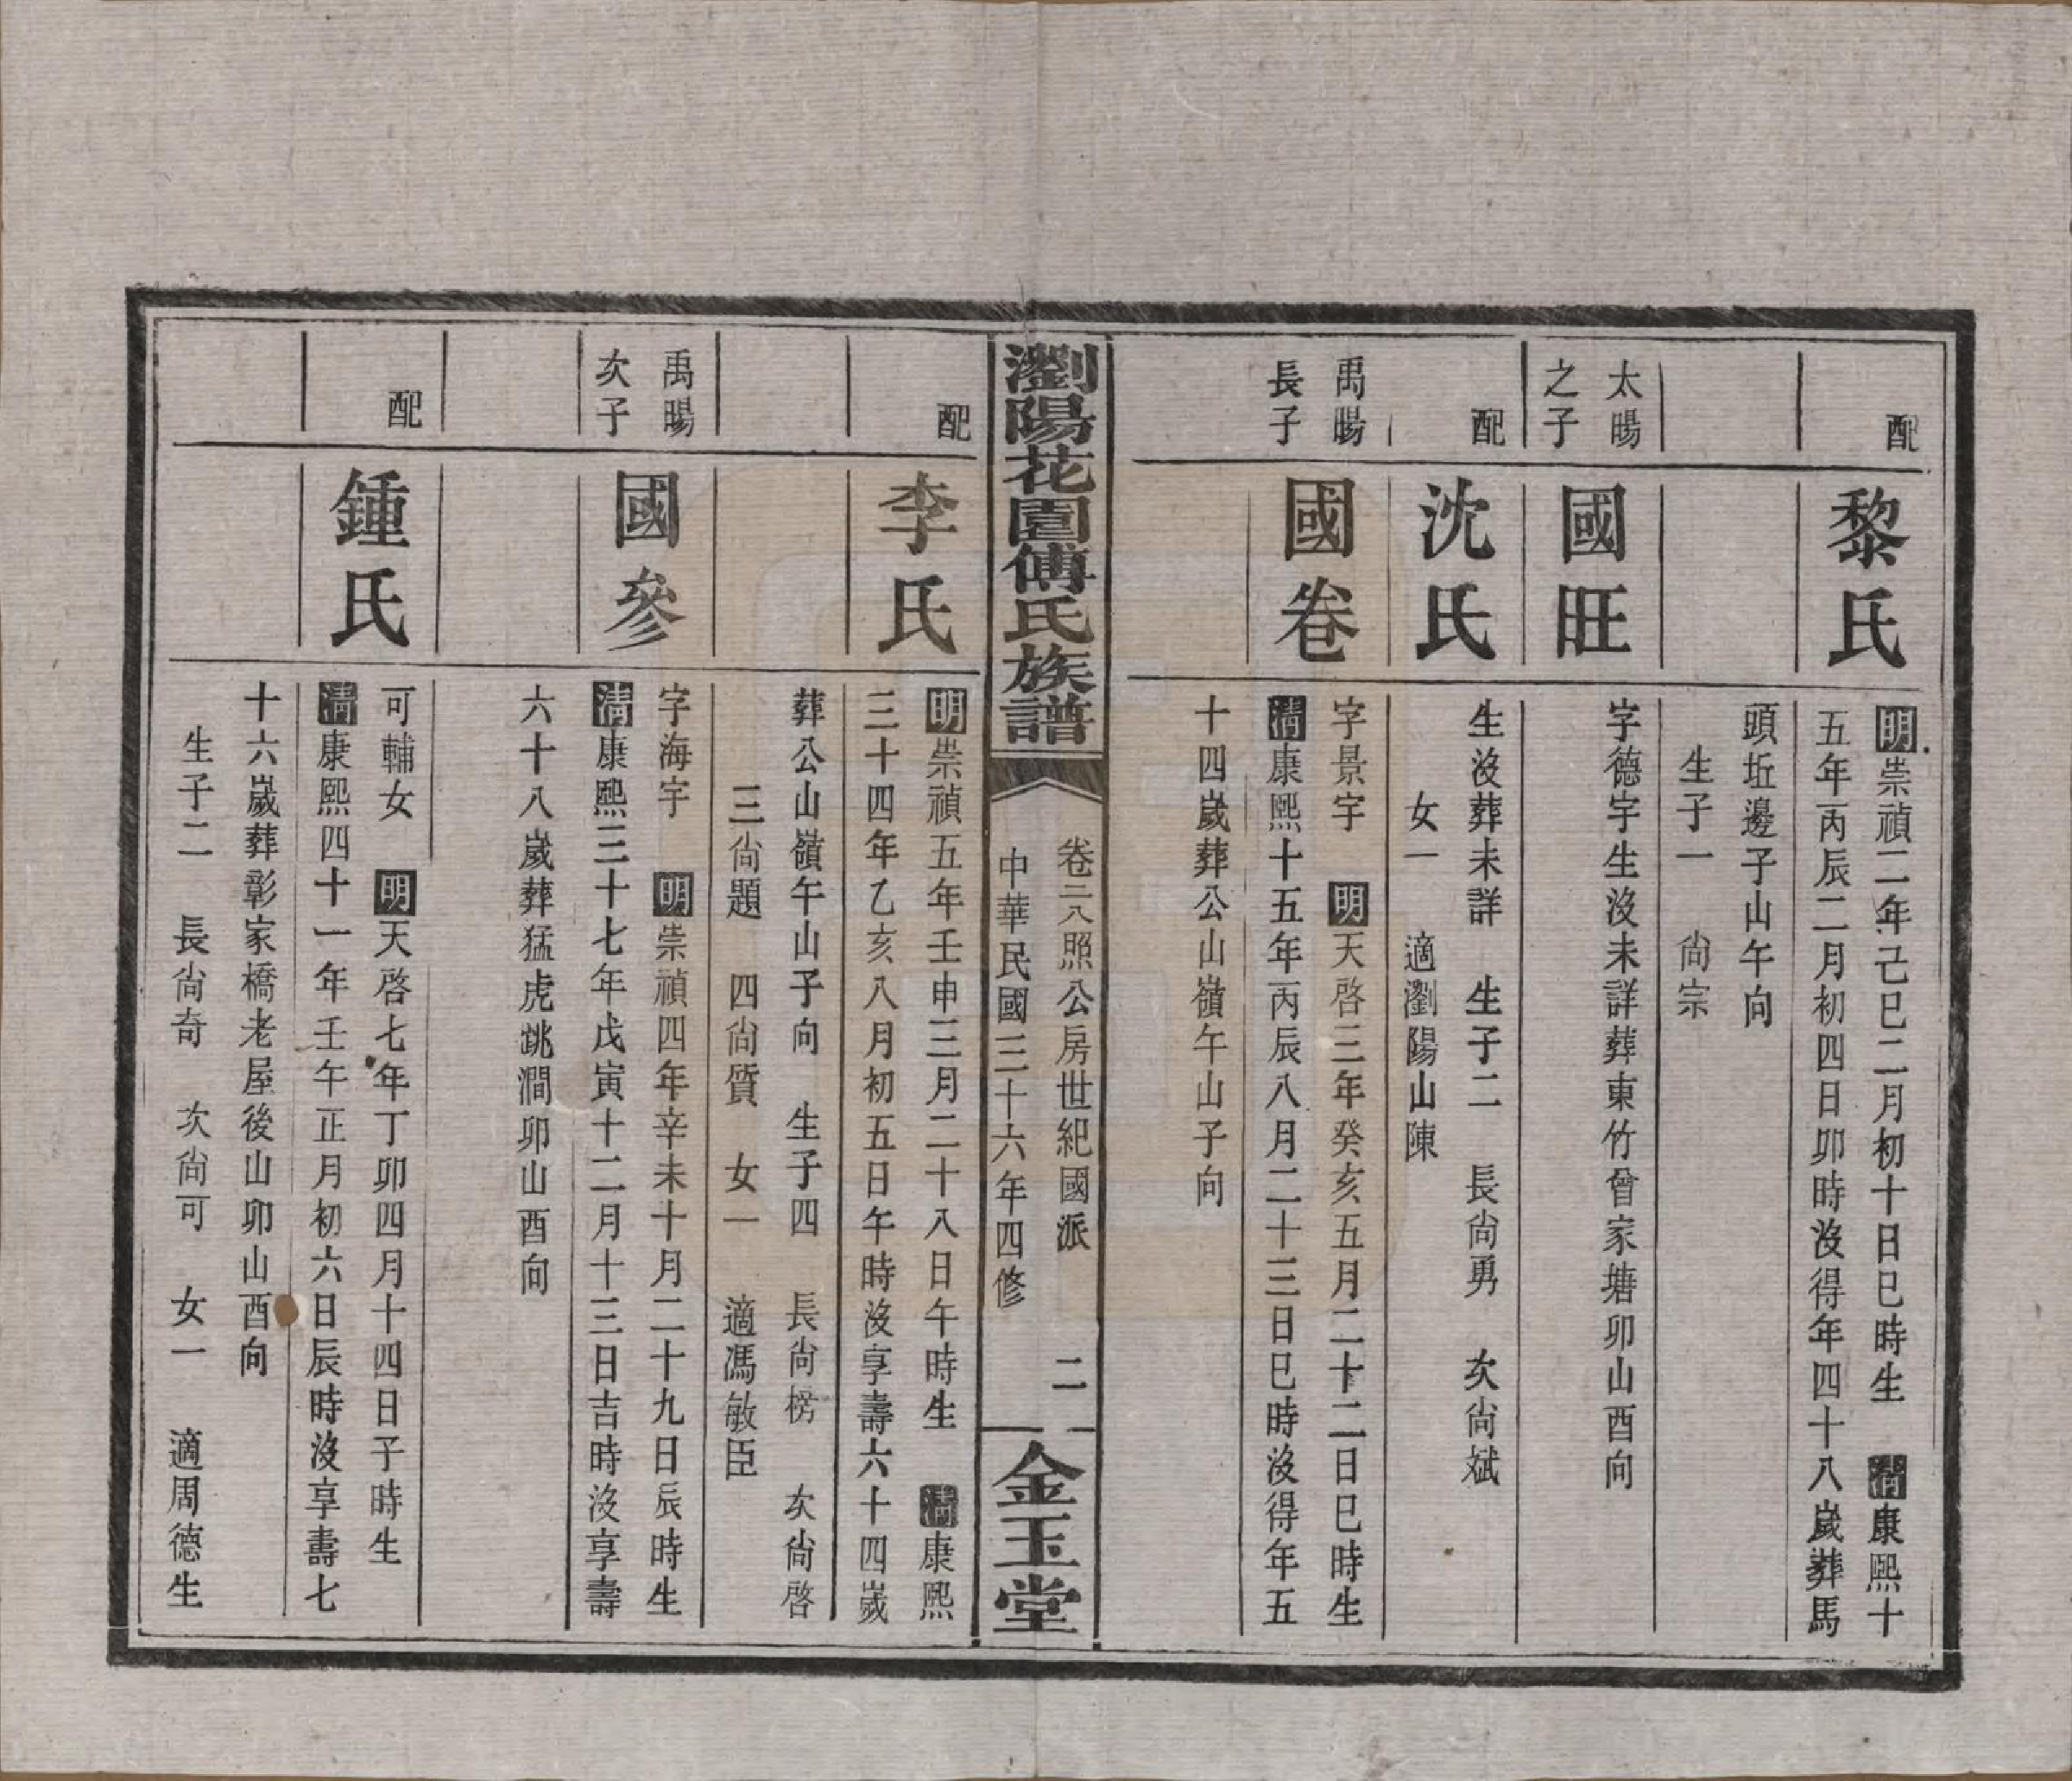 配
黎氏
明崇禎二年己巳二月初十日巳時生 清康熙十
五年丙辰二月初四日卯時沒得年四十八歲葬馬
頭坵邊子山午向
生子一 尙宗
太暘
之子
國旺
字德宇生沒未詳葬東竹曾家塘卯山酉向
配
沈氏
生沒葬未詳 生子二 長尙勇 次尙斌
女一 適瀏陽山陳
禹暘
長子
國卷
字景宇 明天啓三年癸亥五月二十二日巳時生
清康熙十五年丙辰八月二十三日巳時沒得年五
十四歲葬公山嶺午山子向
瀏陽花園傅氏族譜
卷二八照公房世紀國派 二
中華民國三十六年四修
金玉堂
配
李氏
明崇禎五年壬申三月二十八日午時生 清康熙
三十四年乙亥八月初五日午時沒享壽六十四歲
葬公山嶺午山子向 生子四 長尙榜 次尙啓
三尙題 四尙質 女一 適馮敏臣
禹暘
次子
國參
字海宇 明崇禎四年辛未十月二十九日辰時生
清康熙三十七年戊寅十二月十三日吉時沒享壽
六十八歲葬猛虎跳澗卯山酉向
配
鍾氏
可輔女 明天啓七年丁卯四月十四日子時生
清康熙四十一年壬午正月初六日辰時沒享壽七
十六歲葬彰家橋老屋後山卯山酉向
生子二 長尙奇 次尙可 女一 適周德生